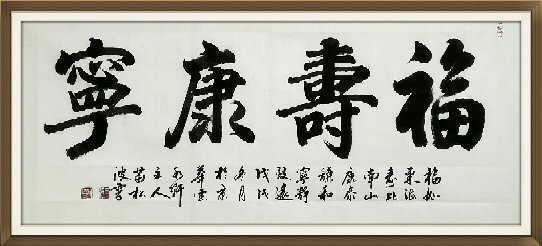 福壽康寧
福如
東海
壽比
南山
康泰
祺和
寧靜
致遠
戊戌
冬月
於京
華雲
主人
波書